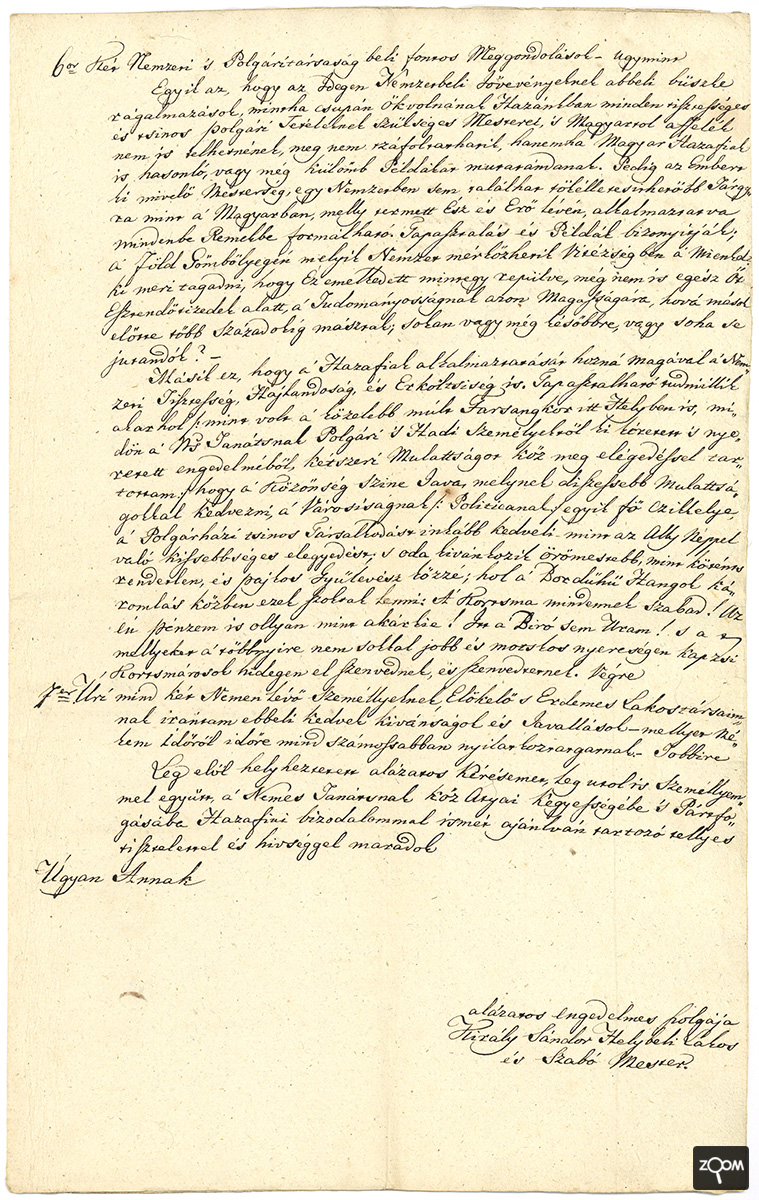 6or Két Nemzeti 's Polgáritársaság beli fontos Meggondolások – ugymint
Egyik az, hogy az Idegen Nemzetbeli Jövevényeknek abbeli büszke
rágalmazások, mintha csupán Ők volnának Hazánkban minden tisztességes
és tsinos Polgári Tételeknek szükséges Mesterei, 's Magyartol affélék
nem is telhetnének, meg nem tzáfoltathatik, hanemha Magyar Hazafiak
is hasonló, vagy még külömb Példákat mutatándanak. Pedig az Embert
ki mivelő Mesterség, egy Nemzetben sem találhat tökélletesithetőbb Tárgy
ra mint a' Magyarban, melly termett Ész és Erő lévén, alkalmaztatva
mindenbe Remekbe formálható. Tapasztalás és Példák bizonyitják;
a' Föld Gömbölyegén melyik Nemzet mérkőzhetik Vitézségben a' Mienkel
ki meri tagadni, hogy Ez emelkedett mintegy repülve, még nem is egész Öt
Esztendőtizedek alatt, a' Tudományosságnak azon Magasságára, hová mások
előtte több Századokig másztak; sokan vagy még későbbre, vagy soha se
jutandók? –
Másik ez, hogy a' Hazafiak alkalmaztatását hozná magával a' Nem
zeti Tisztesség, Hajlandoság, és Erköltsiség is. Tapasztalható tudniillik
akarhol /: mint volt a' közelebb múlt Farsangkor itt Helyben is, mi,
dőn a' Ns Tanátsnak Polgári 's Hadi Személyektől ki kéretett 's nye,
retett engedelméből, kétszeri Mulattságot köz meg elégedéssel tar,
tottam :/ hogy a' Közönség Színe Java, melynek díszessebb Mulattsá,
gokkal kedvezni, a' Városiságnak /: Policzianak :/ egyik fő Czikkelye,
a' Polgárházi tsinos Társalkodást inkább kedveli mint az Ally Néppel
való kissebbséges elegyedést; s oda kivánkozik örömestebb, mint köténts
rendetlen, és pajkos Gyűlevész közzé; hol a' Bordühü Hangok ká,
romlás közben ezek szoktak lenni: A Kortsma mindennek szabad! Az
én pénzem is ollyan mint akárkié! Itt a' Biró sem Uram! s a t
mellyeket a' többnyire nem sokkal jobb és motskos nyereségen kapzsi
Kortsmárosok hidegen el szenvednek, és szenvedtetnek. Végre
7er Úri mind két Nemen lévő Személlyeknek, Előkelő s Erdemes Lakostársaim,
nak irántam ebbeli kedvek kivánságok és Javallások – mellyet Né,
kem Időről időre mind számossabban nyilatkoztatgatnak. – Többire
Leg elől helyheztetett alázatos kérésemet, Leg utol is Személlyem
mel együtt, a' Nemes Tanátsnak köz Atyai Kegyességébe 's Pártfo,
gásába Hazafiui bizodalommal ismét ajánlván tartozó tellyes
tisztelettel és hivséggel maradok
Ugyan Annak
alázatos engedelmes szolgája
Király Sándor Helybeli Lakos
és Szabó Mester.
ZOOM